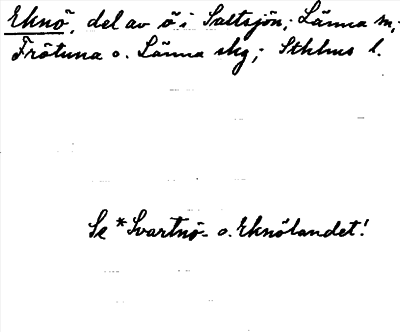 Eknö, del av ö i Saltsjön; Länna m;
Frötuna o. Länna skg; Sthlms l.
Se *Svartnö- o. Eknölandet!